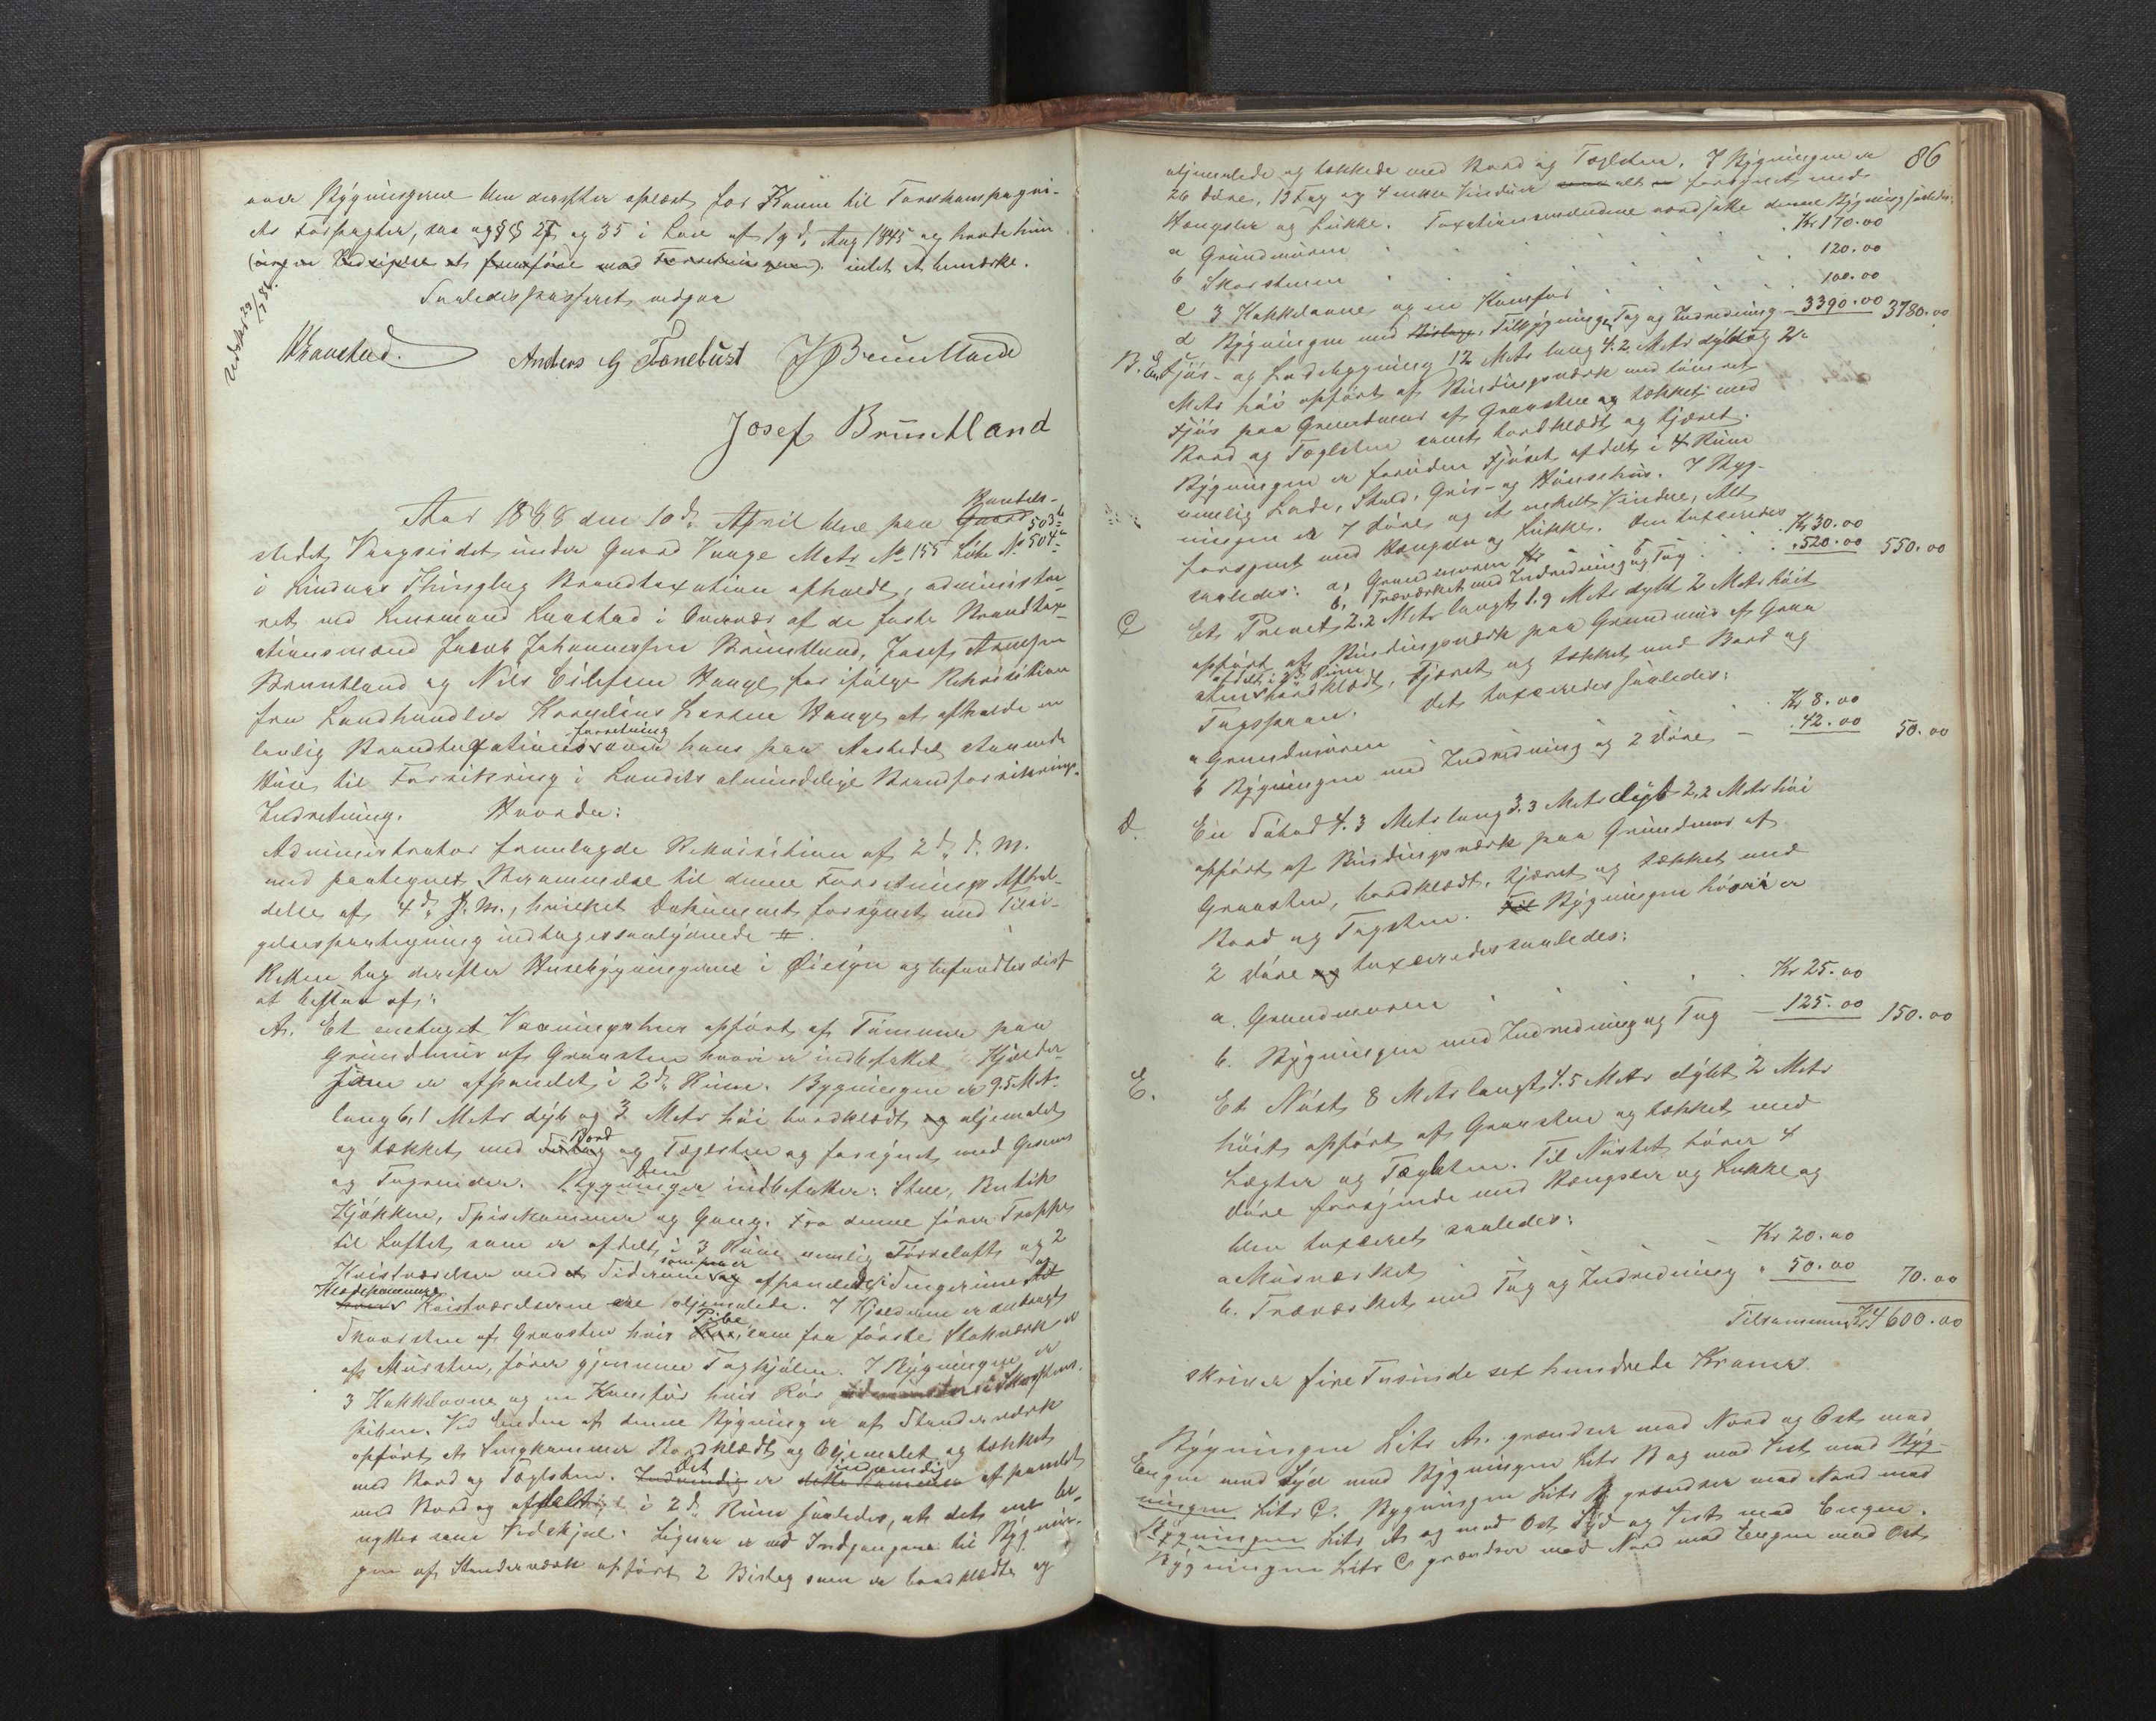 over Bygningerne blev derefter oplæst for Konen til Forskomspagni-
ets Forpagter, saa og §§ 27 og 35 i Lov af 19d. Aug 1845 og havde hun
intet at bemærke.
Saaledes passeret vidner
Udskr 29/7 84.
Kraastad. Anders G Tonebust J Bruntland
Josef Bruntland
Aar 1888 den 10d. April blev paa Gaard Handels-
stedet Vaagseidet under Gaard Vaage Mats No 155 Litr No 503b 504a
i Lindaas Thinglag Brandtaxation afholdt, administre-
ret ved Lensmand Kraastad i Overvær af de faste Brandtax-
ationsmænd Jacob Johannessen Bruntland, Josef Arnesen
Bruntland og Nils Eilefsen Hauge for ifølge Rekvisition
fra Landhandler Kornelius Larsen Vaage at afholde en
lovlig Brandtaxationsforretning over hans paa Aastedet staaende
Huse til Forsikring i Landets almindelige Brandforsikrings-
Indretning. Hvorda:
Administrator fremlagde Rekvisition af 2d. d. M.
med paategnet Berammelse til denne Forretnings Afhol-
delse af 4d. d. M., hvilket Dokument forsynet med Tilsi-
gelsespaategning indtages saalydende #
Retten tog derefter Husebygningerne i Øiesyn og befandtes disse
at bestaa af:
A. Et enetaget Vaaningshus opført af Tømmer paa
Grundmur af Graasten hvori er indbefattet Kjelder
som er afpanelet i 2de Rum. Bygningen er 9.5 Met.
lang 6,1 Meter dyb og 3 Meter høi bordklædt og oljemalet
og tækket med Bord og Taglsten og forsynet med
og Tagrender. Bygningen indbefatter: Stue, Butik
Kjøkken, Spiskammer og Gang. Fra denne fører Trappe
til Loftet som er afdelt i 3 Rum nemlig Tørreloft og 2
Kvistværelser med Siderum som er afpanelede i Sengerum og
Klædekammere Kvistværelserne ere oljemalede. I Kjelderen er anbragt
Skorsten af Graasten hvis Pibe, som fra første Stokværk er
af Mursten, fører gjennem Taghjelm. I Bygningen er
3 Kakkelovne og en Komfur hvis Rør i Skorstens-
piben. Ved Enden af denne Bygning er af Standerværk
opført et Sengkammer Bordklædt og Oljemalet og tækket
med Bord og Taglsten. Det er indvendig afpanelet
med Bord og afdelt i 2de Rum saaledes, at det ene be-
nyttes som Vedskjul. Ligesaa er ved Indgangene til Bygnin-
gen af Standerværk opført 2 Bislag som er bordklædte og
86
oljemalede og tækkede med Bord og Taglsten. I Bygningen er
26 Døre, 19 Fag og 4 enkle Vinduer alt forsynet med
Hængsler og Lukke. Taxationsmændene værdsatte denne Bygning saaledes:
a Grundmuren . . . Kr 170.00
b Skorstenen . . . 120.00
c 3 Kakkelovne og en Komfur . . . 100.00
d Bygningen med Tilbygninge, Tag og Indredning - 3390.00 3780.00
B. En Fjøs- og Ladebygning 12 Meter lang 4.2 Meter dyb og 2
Meter høi opført af Bindingsværk med tømret
Fjøs paa Grundmur af Graasten og tækket med
Bord og Taglsten samt bordklædt og tjæret.
Bygningen er foruden Fjøset afdelt i 4 Rum
nemlig Lade, Stald, Gris- og Hønsehus. I Byg-
ningen er 7 Døre og et enkelt Vindue, Alt
forsynet med Hængsler og Lukke. Den taxeredes
saaledes: a, Grundmuren Kr 30.00
b, Træværket med Indredning og Tag . . 520.00 550.00
C Et Privet, 2.2 Meter langt 1.9 Meter dybt 2 Meter høit
opført af Bindingsværk paa Grundmur af Graa
sten afdelt i 2de Rum bordklædt, tjæret og tækket med Bord og
Tagspaan. Det taxeredes saaledes:
a Grundmuren . . Kr 8.00
b Bygningen med Indredning og 2 Døre - 42.00 50.00
D. En Søbod 4.3 Meter lang 3.3 Meter dyb 2.2 Meter høi
opført af Bindingsværk paa Grundmur af
Graasten, bordklædt, tjæret og tækket med
Bord og Tagsten. Til Bygningen hvori er
2 Døre og taxeredes saaledes:
a. Grundmuren . . Kr 25.00
b. Bygningen med Indredning og Tag - 125.00 150.00
E. Et Nøst 8 Meter langt, 4.5 Meter dybt 2 Meter
høit opført af Graasten og tækket med
Lægter og Taglsten. Til Nøstet hører 4
Døre forsynede med Hængsler og Lukke og
blev taxeret saaledes:
a Murværket . . Kr 20.00
b. Træværket med Tag og Indredning " 50.00 70.00
Tilsammen Kr 4600.00
skriver fire Tusinde sex hundrede Kroner.
Bygningen Litr A. grændser mod Nord og Ost mod
Engen mod Syd mod Bygningen Litr B og mod Vest mod Byg-
ningen Litr C. Bygningen Litr B grændser mod Nord mod
Bygningen Litr A og mod Ost Syd og Vest mod Engen.
Bygningen Litr C grændser mod Nord mod Engen mod Ost